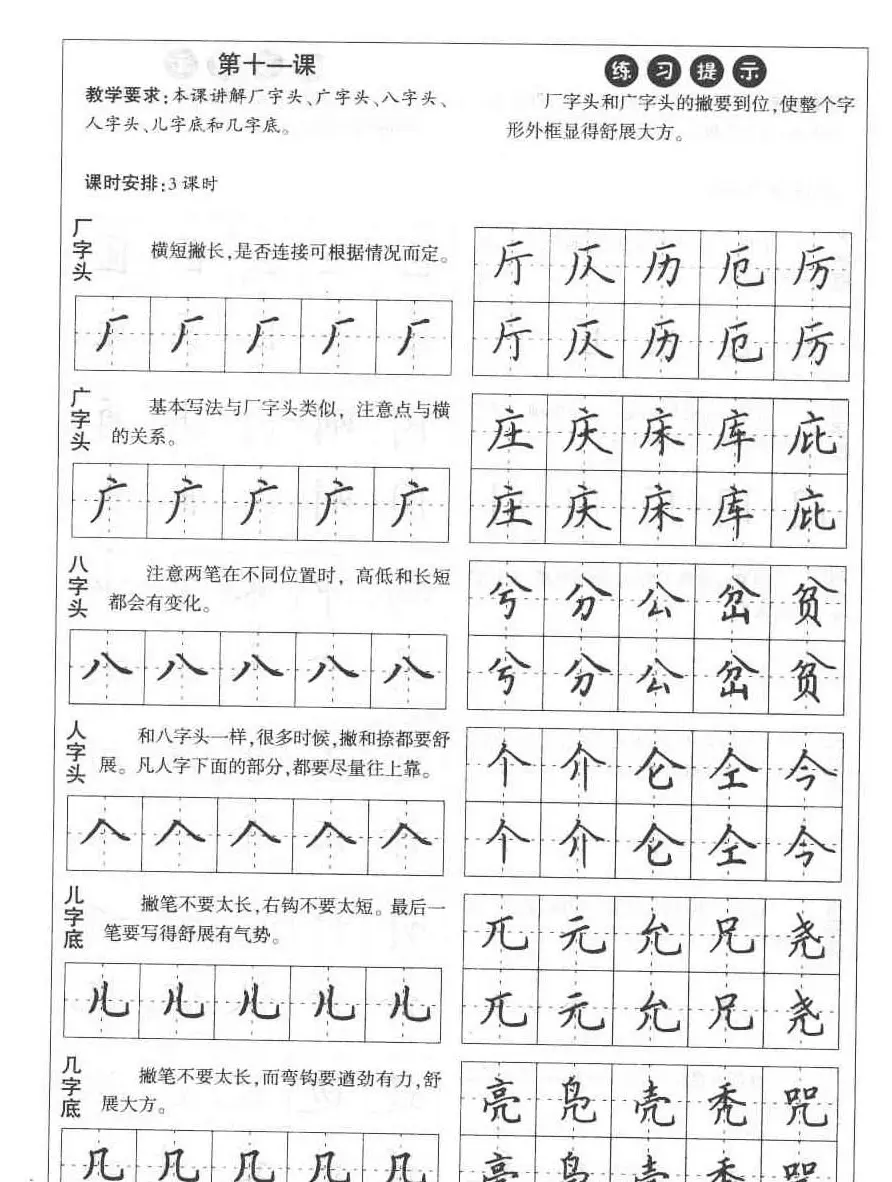 第十一课
教学要求:本课讲解厂字头、广字头、八字头、
人字头、儿字底和几字底。
课时安排:3课时
练习提示
厂字头和广字头的撇要到位,使整个字
形外框显得舒展大方。
厂字头
横短撇长,是否连接可根据情况而定。
厂 厂 厂 厂 厂
厅 仄 历 厄 厉
厅 仄 历 厄 厉
广字头
基本写法与厂字头类似,注意点与横
的关系。
广 广 广 广 广
庄 庆 床 库 庇
庄 庆 床 库 庇
八字头
注意两笔在不同位置时,高低和长短
都会有变化。
八 八 八 八 八
兮 分 公 岔 贫
兮 分 公 岔 贫
人字头
和八字头一样,很多时候,撇和捺都要舒
展。凡人字下面的部分,都要尽量往上靠。
人 人 人 人 人
个 介 仑 仝 今
个 介 仑 仝 今
儿字底
撇笔不要太长,右钩不要太短。最后一
笔要写得舒展有气势。
儿 儿 儿 儿 儿
兀 元 允 兄 尧
兀 元 允 兄 尧
几字底
撇笔不要太长,而弯钩要遒劲有力,舒
展大方。
凡 凡 凡 凡 凡
亮 凫 壳 秃 咒
亮 凫 壳 秃 咒